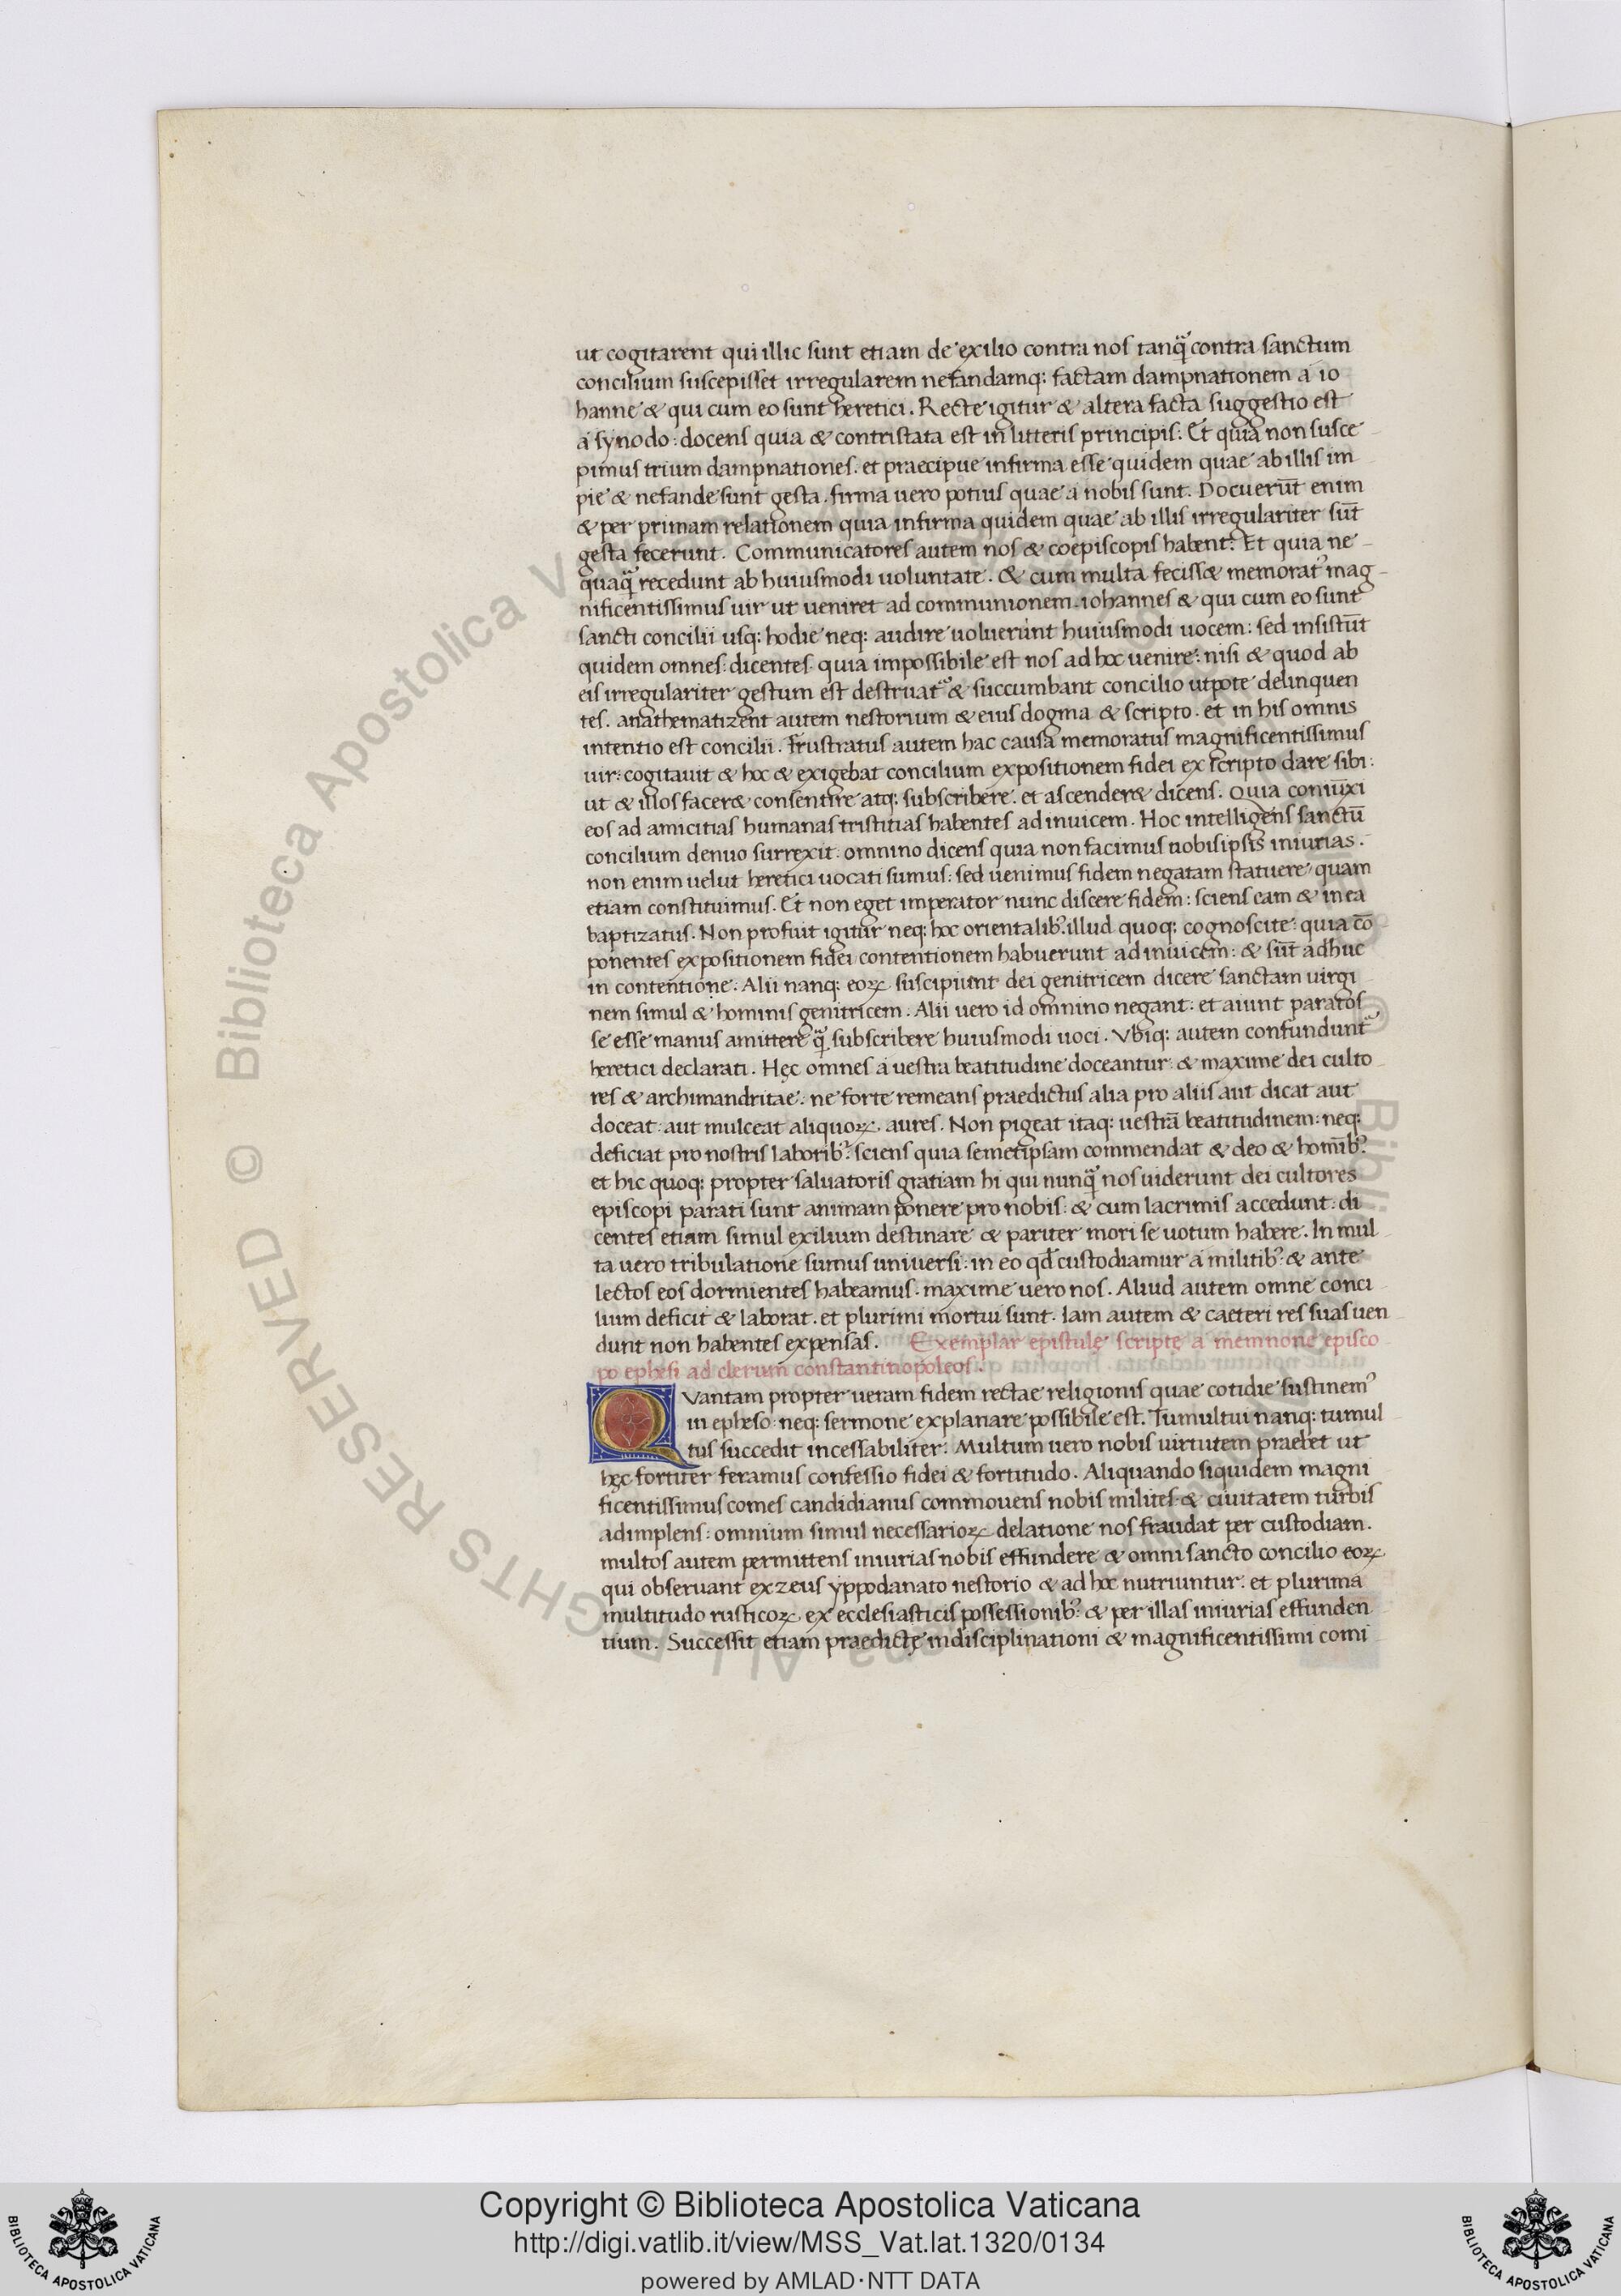 ut cogitarent qui illic sunt etiam de exilio contra nos tanq̃ contra sanctum
concilium suscepisset irregularem nefandamq: factam dampnationem a io
hanne & qui cum eo sunt heretici. Recte igitur & altera facta suggestio est
a synodo: docens quia & contristata est in litteris principis. Et quia non susce
pimus trium dampnationes. et praecipue infirma esse quidem quae ab illis im
pie & nefande sunt gesta. firma uero potius quae a nobis sunt. Docuerũt enim
& per primam relationem quia infirma quidem quae ab illis irregulariter sũt
gesta fecerunt. Communicatores autem nos & coepiscopis habent. Et quia ne
quaq̃ recedunt ab huiusmodi uoluntate. & cum multa feciss& memorat᾽ mag
nificentissimus uir ut ueniret ad communionem iohannes & qui cum eo sunt
sancti concilii usq: hodie neq: audire uoluerunt huiusmodi uocem: sed insistũt
quidem omnes: dicentes quia impossibile est nos ad hoc uenire: nisi & quod ab
eis irregulariter gestum est destruat᾽ & succumbant concilio utpote delinquen
tes. anathematizent autem nestorium & eius dogma & scripto. et in his omnis
intentio est concilii. Frustratus autem hac causa memoratus magnificentissimus
uir: cogitauit & hoc & exigebat concilium expositionem fidei ex scripto dare sibi:
ut & illos facer& consentire atq: subscribere. et ascender& dicens. Quia coniũxi
eos ad amicitias humanas tristitias habentes adinuicem. Hoc intelligens sanctũ
concilium denuo surrexit. omnino dicens quia non facimus nobisipsis iniurias.
non enim uelut heretici uocati sumus: sed uenimus fidem negatam statuere quam
etiam constituimus. Et non eget imperator nunc discere fidem: sciens eam & in ea
baptizatus. Non profuit igitur neq: hoc orientalib᾽. illud quoq: cognoscite: quia cõ
ponentes expositionem fidei contentionem habuerunt adinuicem: & sũt adhuc
in contentione. Alii nanq: eoꝝ suscipiunt dei genitricem dicere sanctam uirgi
nem simul & hominis genitricem. Alii uero id omnino negant: et aiunt paratos
se esse manus amittere q̃ subscribere huiusmodi uoci. Vbiq: autem confundunt᾽
heretici declarati. Hęc omnes a uestra beatitudine doceantur: & maxime dei culto
res & archimandritae. ne forte remeans praedictus alia pro aliis aut dicat aut
doceat: aut mulceat aliquoꝝ aures. Non pigeat itaq: uestrã beatitudinem: neq:
deficiat pro nostris laborib᾽: sciens quia semetipsam commendat & deo & homĩb᾽.
et hic quoq: propter saluatoris gratiam hi qui nunq̃ nos uiderunt dei cultores
episcopi parati sunt animam ponere pro nobis: & cum lacrimis accedunt: di
centes etiam simul exilium destinare & pariter mori se uotum habere. In mul
ta uero tribulatione sumus uniuersi: in eo qd̃ custodiamur a militib᾽: & ante
lectos eos dormientes habeamus. maxime uero nos. Aliud autem omne conci
lium deficit & laborat. et plurimi mortui sunt. Iam autem & caeteri res suas uen
dunt non habentes expensas. Exemplar epistulę scriptę a memnone episco
po ephesi ad clerum constantinopoleos.
Quantam propter ueram fidem rectae religionis quae cotidie sustinem᾽
in epheso: neq: sermone explanare possibile est. Tumultui nanq: tumul
tus succedit incessabiliter. Multum uero nobis uirtutem praebet ut
hęc fortiter feramus confessio fidei & fortitudo. Aliquando siquidem magni
ficentissimus comes candidianus commouens nobis milites & ciuitatem turbis
adimplens: omnium simul necessarioꝝ delatione nos fraudat per custodiam.
multos autem permittens iniurias nobis effundere & omni sancto concilio eoꝝ
qui obseruant exzeus yppodanato nestorio & ad hoc nutriuntur. et plurima
multitudo rusticoꝝ ex ecclesiasticis possessionib᾽: & per illas iniurias effunden
tium. Successit etiam praedictę indisciplinationi & magnificentissimi comi
© Biblioteca Apostolica Vaticana ALL RIGHTS RESERVED
Copyright © Biblioteca Apostolica Vaticana
http://digi.vatlib.it/view/MSS_Vat.lat.1320/0134
powered by AMLAD·NTT DATA
BIBLIOTECA APOSTOLICA VATICANA
BIBLIOTECA APOSTOLICA VATICANA